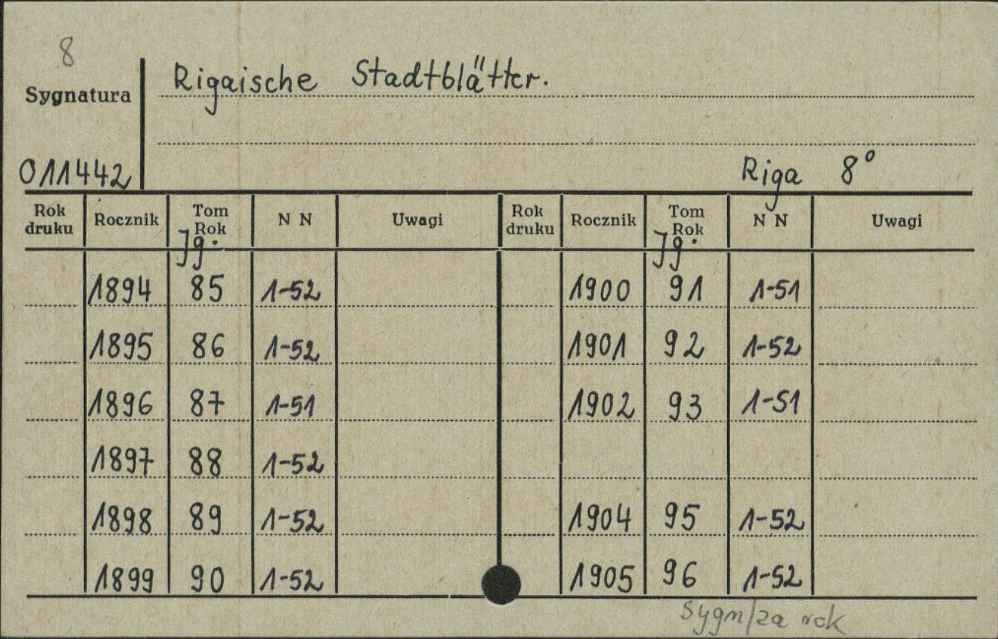 8
Sygnatura
Rigaische Stadtblätter.
011442
Riga 8°
Rok druku Rocznik Tom Rok N N Uwagi Rok druku Rocznik Tom Rok N N Uwagi
Jg. Jg.
1894 85 1-52 1900 91 1-51
1895 86 1-52 1901 92 1-52
1896 87 1-51 1902 93 1-51
1897 88 1-52
1898 89 1-52 1904 95 1-52
1899 90 1-52 1905 96 1-52
Sygn/za rok